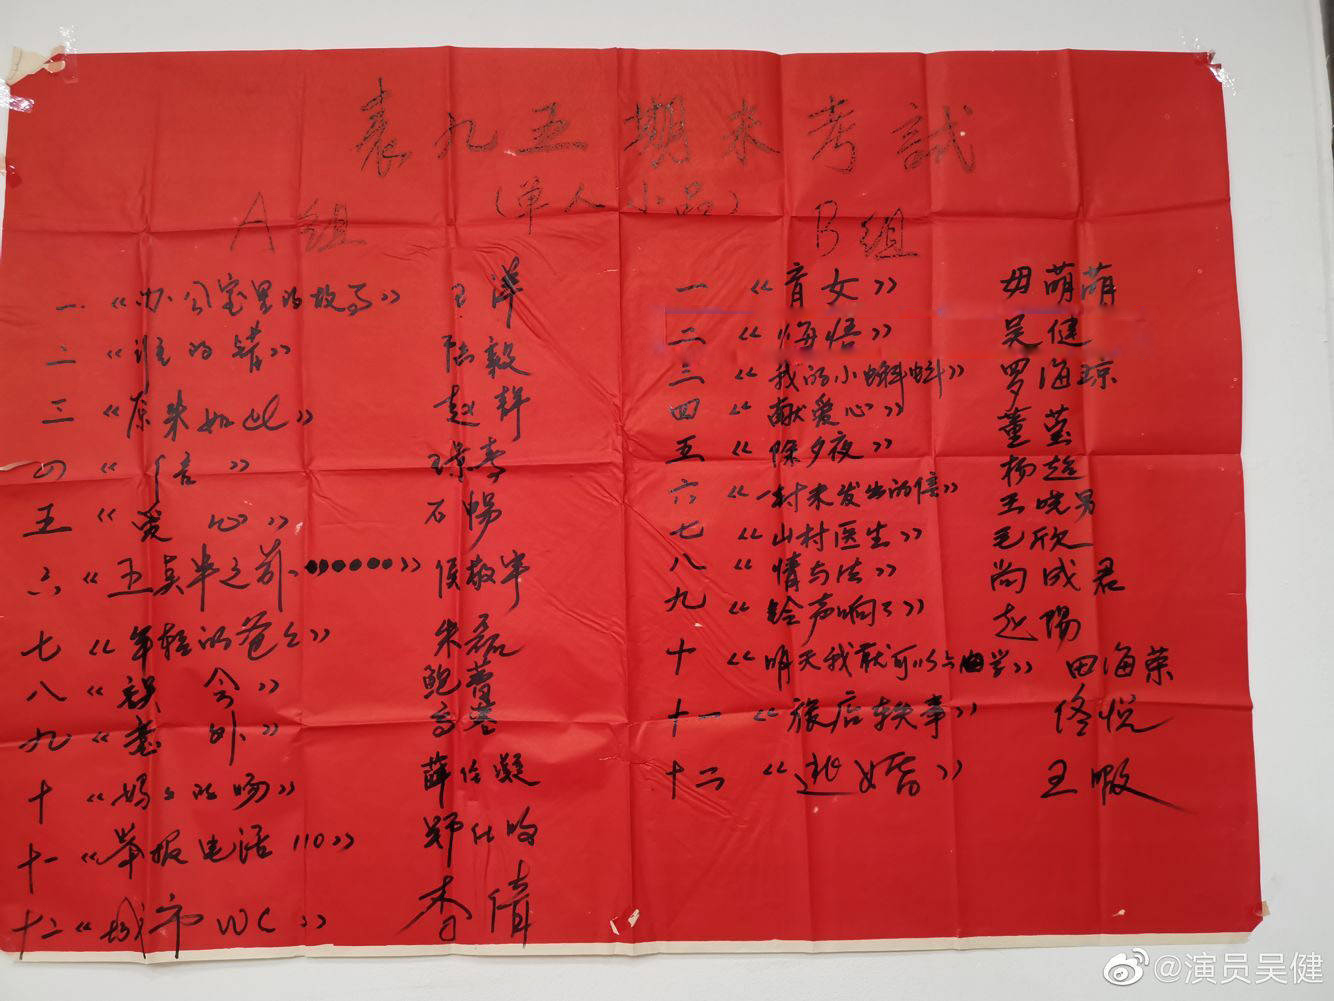 表九五期末考試
(单人小品)
A组
一《办公室里的故事》 王洋
二《谁的错》 陆毅
三《原来如此》 赵
四《信》
五《爱心》 石畅
六《五真半之前、●●●●●●●》 侯敬
七《年轻的爸爸》 朱磊
八《误会》 鲍蕾
九《意外》
十《妈妈的吻》 薛佳凝
十一《举报电话110》 郑仕明
十二《城市WC》 李倩
B组
一《育女》 毋萌萌
二《悔悟》 吴健
三《我的小蝌蚪》 罗海琼
四《献爱心》 董莹
五《除夕夜》 杨超
六《一封未发出的信》 王晓男
七《山村医生》 毛欣
八《情与法》 尚成君
九《铃声响了》 赵陽
十《明天我就可以上学》 田海荣
十一《旅店轶事》 佟悦
十二《逃婚》 王暇
@演员吴健